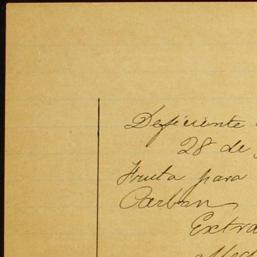 Deficiente
28 de
Fruta para
Carbon
Extra